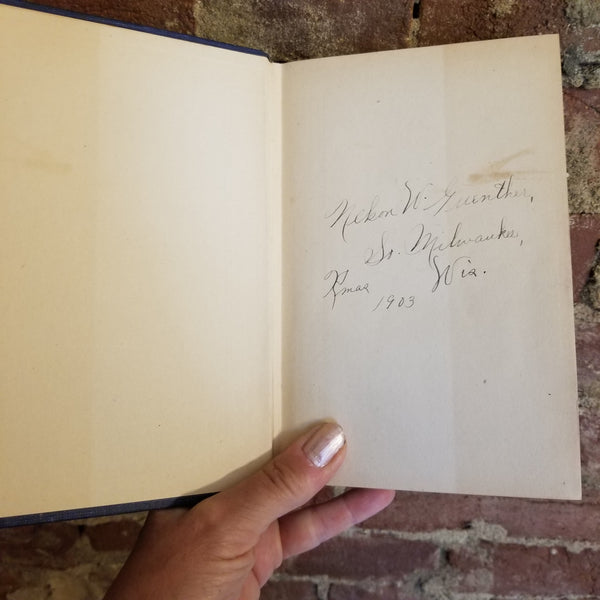 Nelson W. Guenther,
So. Milwaukee,
Xmas Wis.
1903